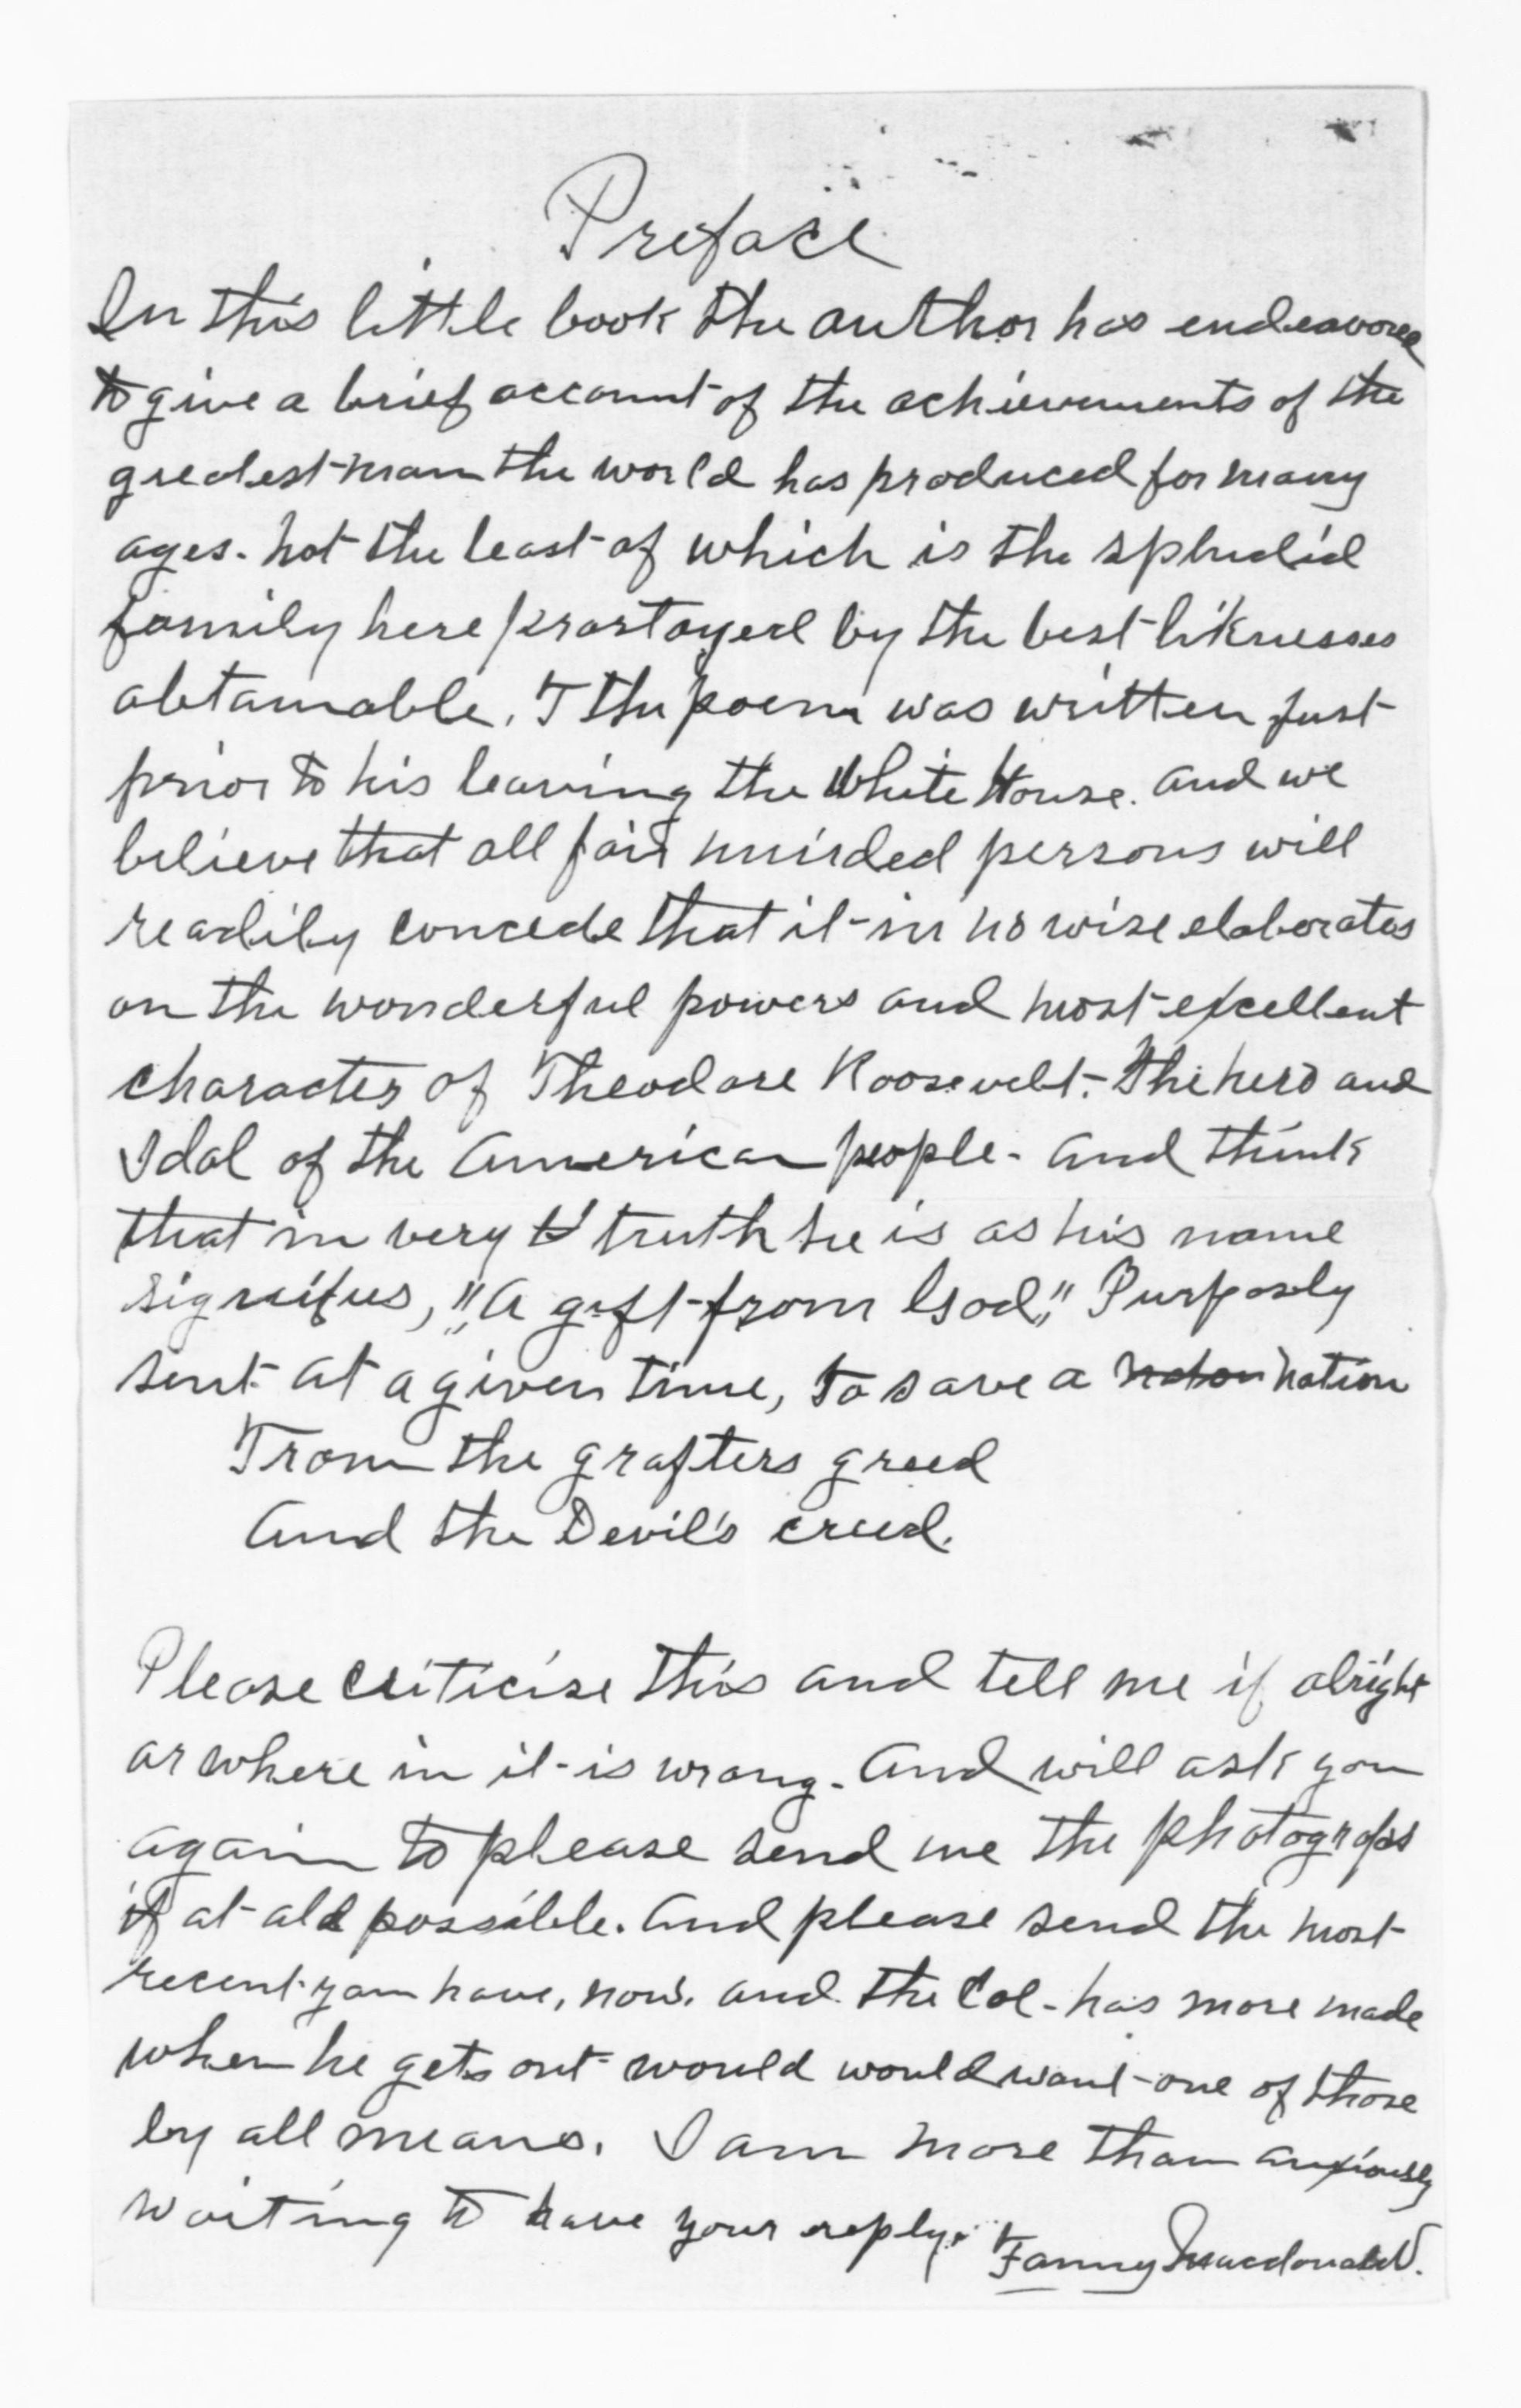 Preface
In this little book the author has endeavored
to give a brief account of the achievements of the
greatest man the world has produced for many
ages. not the least of which is the splendid
family here prortayed by the best liknesses
obtainable. T the poem was written just
prior to his leaving the White House. and we
believe that all fair minded persons will
readily concede that it in no wise elaborates
on the wonderful powers and most excellent
character of Theodore Roosevelt. The hero and
Idol of the American people. and think
that in very truth he is as his name
signifies, "A gift from God," Purposely
sent at a given time, to save a nation
From the grafters greed
And the Devil's creed.
Please criticise this and tell me if alright
or where in it is wrong. And will ask you
again to please send me the photograps
if at all possible. And please send the most
recent you have, now. and the Col. has more made
when he gets out would would want one of those
by all means. I am more than anxiously
waiting to have your reply. Fanny Macdonald.